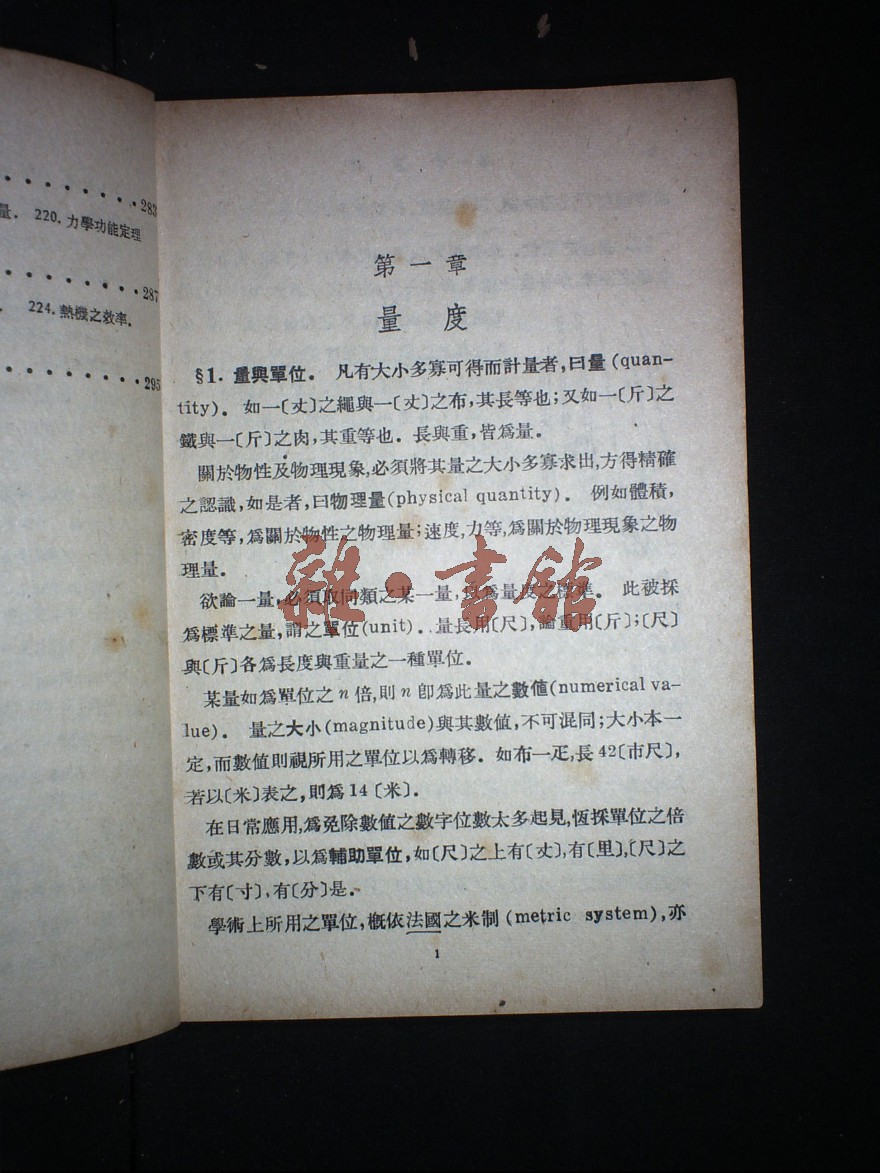 283
量． 220. 力學功能定理
287
224. 熱機之效率．
295
第一章
量 度
§1. 量與單位。 凡有大小多寡可得而計量者，曰量 (quan-
tity)。 如一〔丈〕之繩與一〔丈〕之布，其長等也；又如一〔斤〕之
鐵與一〔斤〕之肉，其重等也．長與重，皆爲量．
關於物性及物理現象，必須將其量之大小多寡求出，方得精確
之認識，如是者，曰物理量(physical quantity)。 例如體積，
密度等，爲關於物性之物理量；速度，力等，爲關於物理現象之物
理量．
欲論一量，必須取同類之某一量，以爲量度之標準。 此被採
爲標準之量，謂之單位(unit)．量長用〔尺〕，論重用〔斤〕；〔尺〕
與〔斤〕各爲長度與重量之一種單位．
某量如爲單位之 n 倍，則 n 卽爲此量之數值(numerical va-
lue)。 量之大小(magnitude)與其數值，不可混同；大小本一
定，而數值則視所用之單位以爲轉移．如布一疋，長 42〔市尺〕，
若以〔米〕表之，則爲 14〔米〕．
在日常應用，爲免除數值之數字位數太多起見，恆採單位之倍
數或其分數，以爲輔助單位，如〔尺〕之上有〔丈〕，有〔里〕，〔尺〕之
下有〔寸〕，有〔分〕是．
學術上所用之單位，槪依法國之米制 (metric system)，亦
1
雜·書館